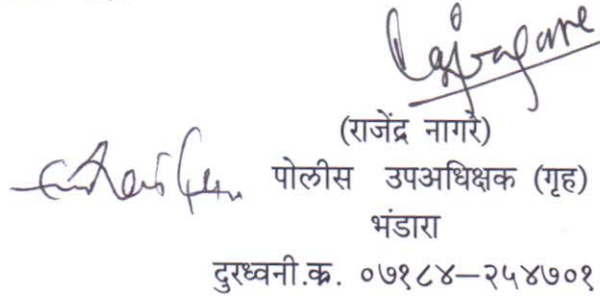 (राजेंद्र नागरे)
पोलीस उपअधिक्षक (गृह)
भंडारा
दुरध्वनी.क्र. ०७१८४—२५४७०१